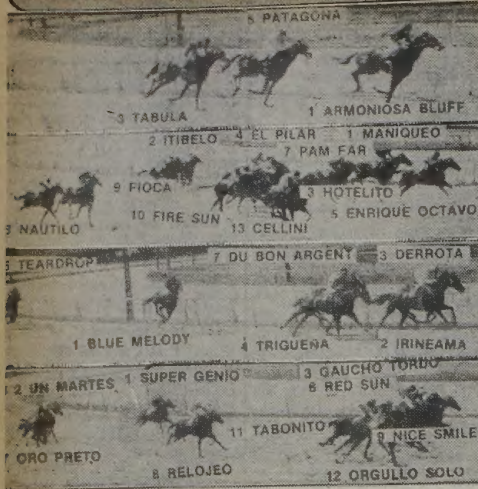 5 PATAGONA
3 TABULA
1 ARMONIOSA BLUFF
2 ITIBELO
4 EL PILAR
1 MANIQUEO
7 PAM FAR
9 FIOCA
3 HOTELITO
10 FIRE SUN
5 ENRIQUE OCTAVO
NAUTILO
13 CELLINI
TEARDROP
7 DU BON ARGENT
3 DERROTA
1 BLUE MELODY
4 TRIGUEÑA
2 IRINEAMA
2 UN MARTES
1 SUPER GENIO
3 GAUCHO TORDO
6 RED SUN
11 TABONITO
9 NICE SMILE
ORO PRETO
8 RELOJEO
12 ORGULLO SOLO